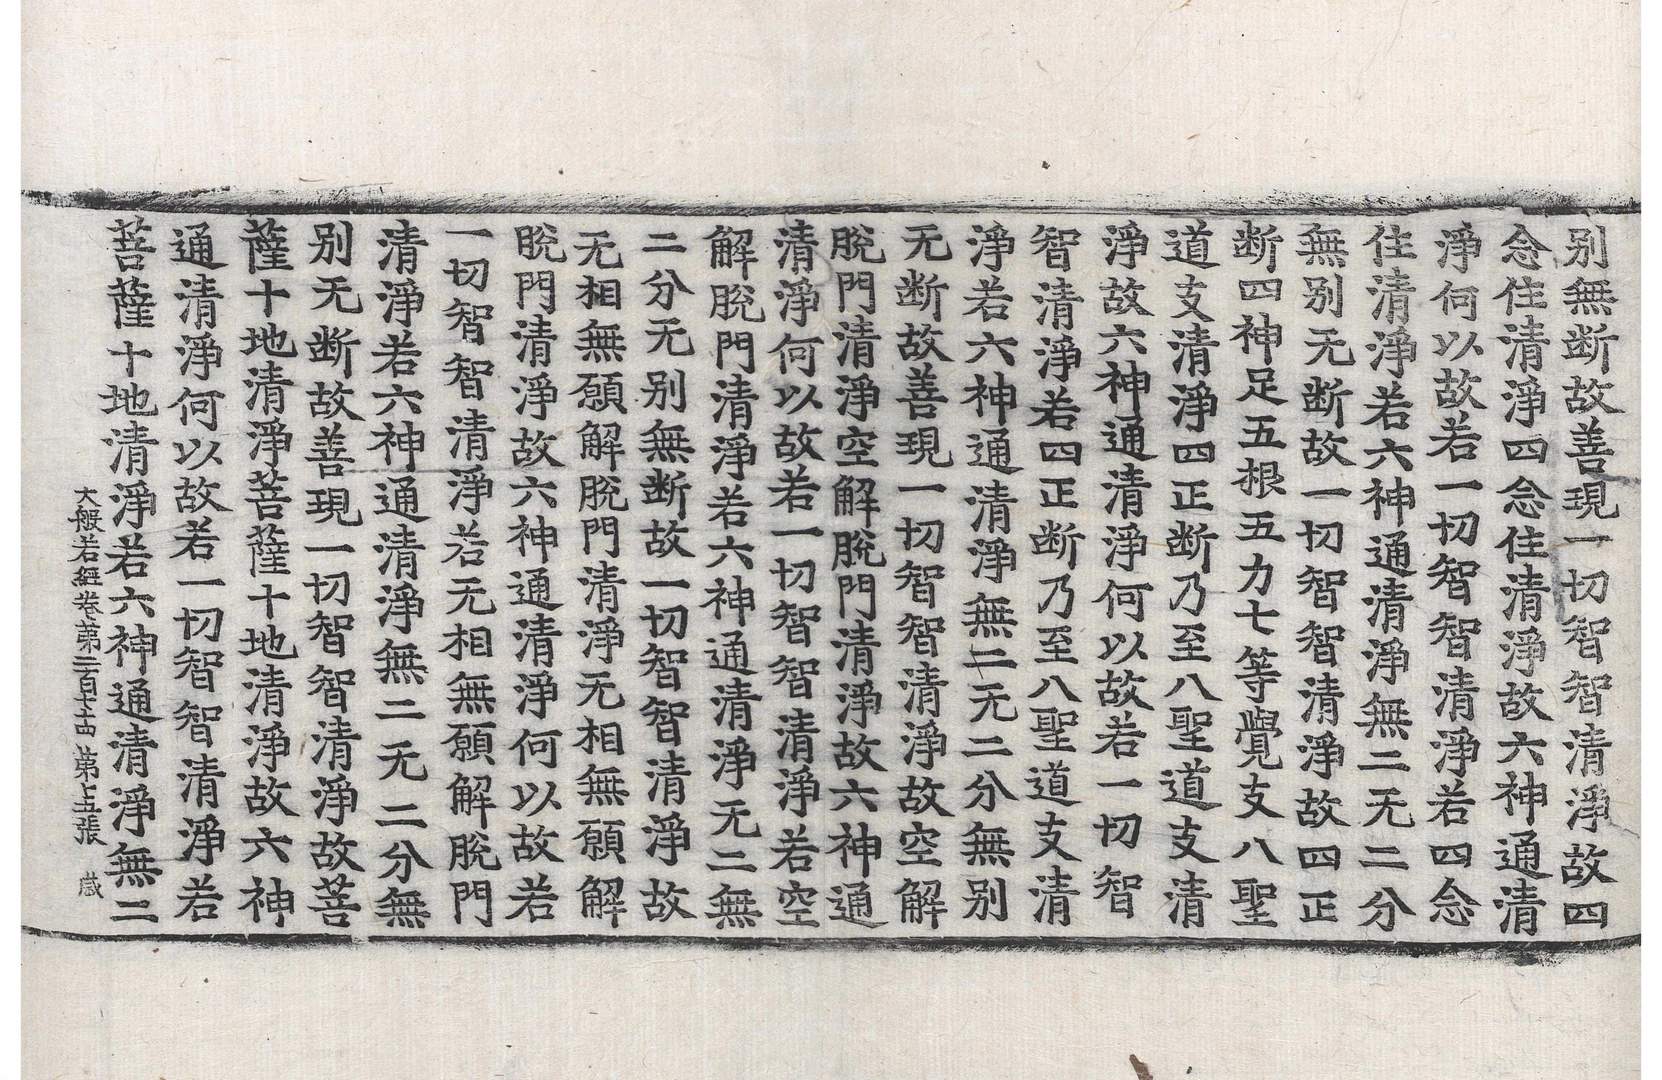 别無断故善現一切智智清淨故四
念住清淨四念住清淨故六神通清
淨何以故若一切智智清淨若四念
住清淨若六神通清淨無二无二分
無别无断故一切智智清淨故四正
断四神足五根五力七等覺支八聖
道支清淨四正断乃至八聖道支清
淨故六神通清淨何以故若一切智
智清淨若四正断乃至八聖道支清
淨若六神通清淨無二无二分無别
无断故善現一切智智清淨故空解
脫門清淨空解脫門清淨故六神通
清淨何以故若一切智智清淨若空
解脫門清淨若六神通清淨无二無
二分无别無断故一切智智清淨故
无相無願解脫門清淨无相無願解
脫門清淨故六神通清淨何以故若
一切智智清淨若无相無願解脫門
清淨若六神通清淨無二无二分無
别无断故善現一切智智清淨故菩
薩十地清淨菩薩十地清淨故六神
通清淨何以故若一切智智清淨若
菩薩十地清淨若六神通清淨無二
大般若經卷第二百七十四 第十五張